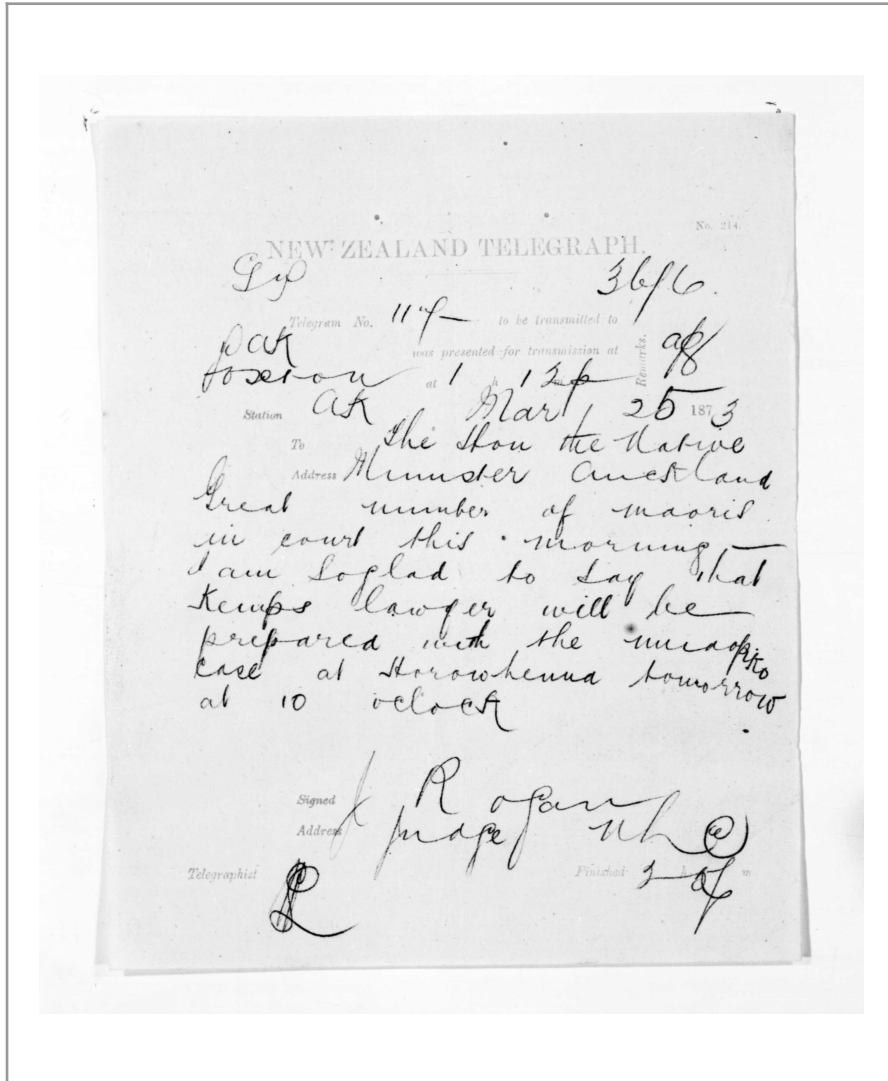 No. 214.
NEW ZEALAND TELEGRAPH.
Telegram No. 117 to be transmitted to
was presented for transmission at
Foxton at 1 h
Remarks.
Station AK Mar 25 1873
To The Hon the Native
Address Minister Auckland
Great number of maoris
in court this morning —
I am so glad to say that
Kemps lawyer will be
prepared with the muaopoko
case at Horowhenna tomorrow
at 10 oclock
Signed J Rogan
Address Judge N L C
Telegraphist
Finished 2